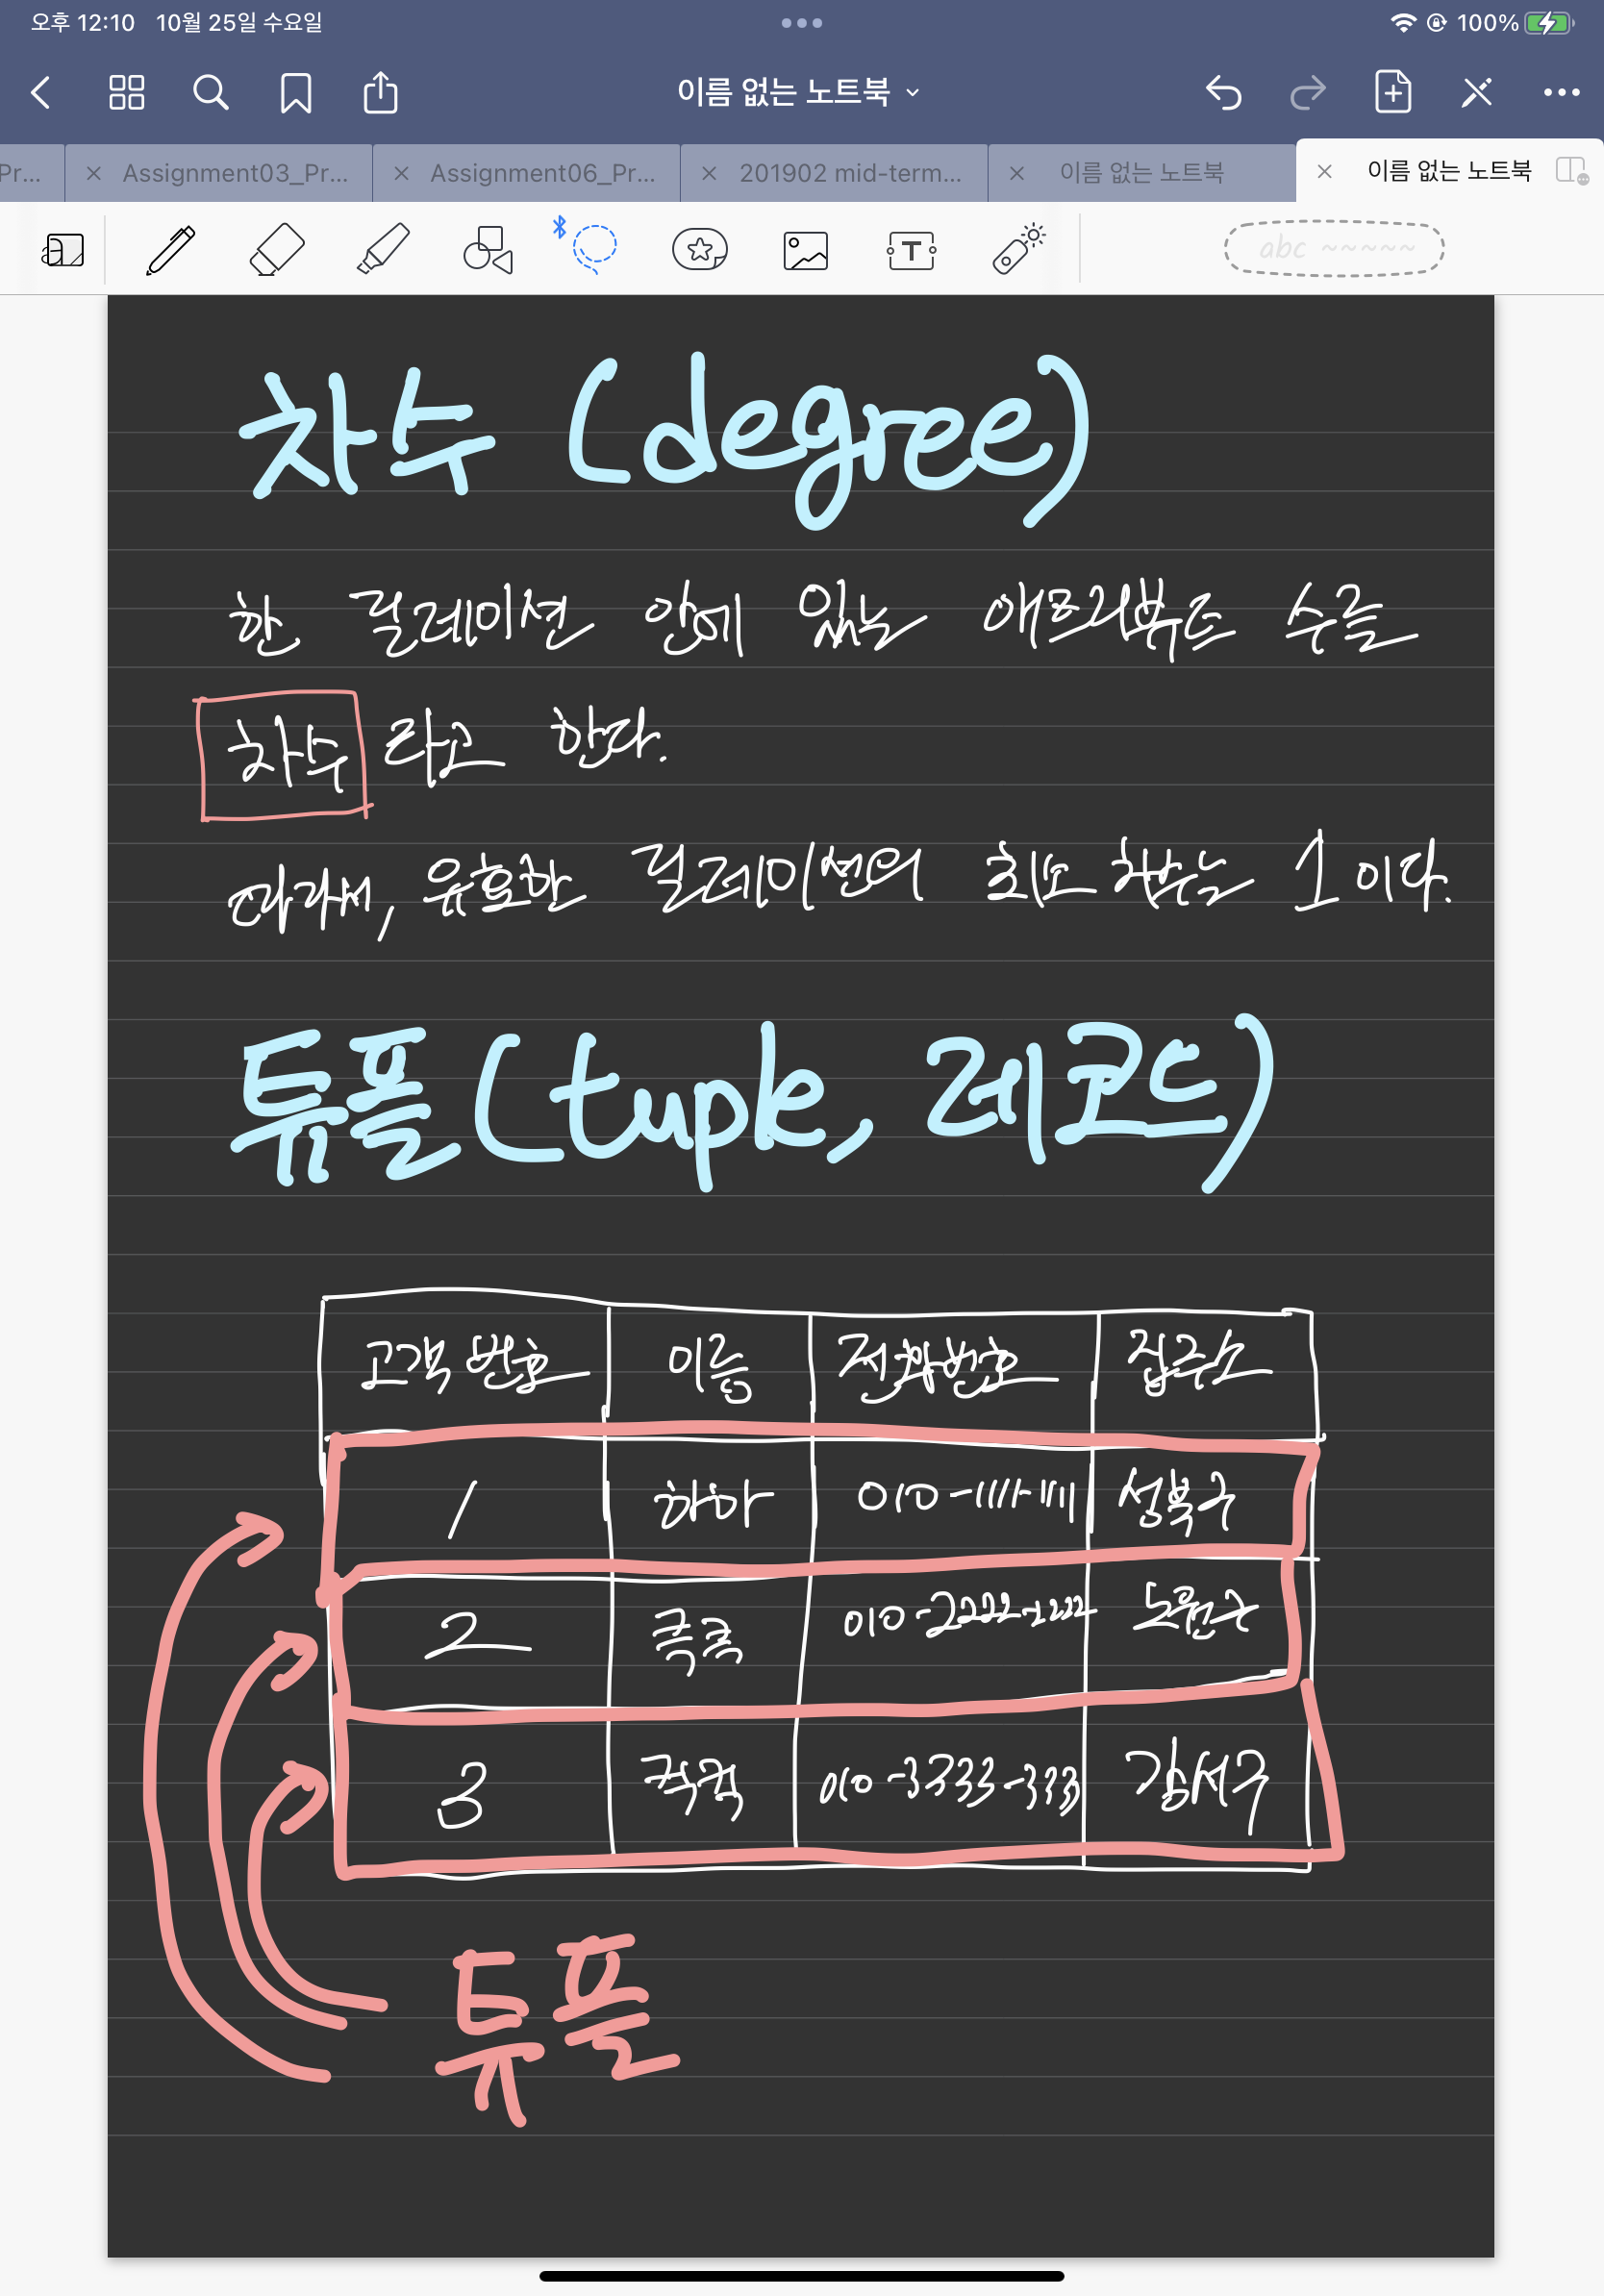 오후 12:10 10월 25일 수요일 100%
이름 없는 노트북
Pr... Assignment03_Pr... Assignment06_Pr... 201902 mid-term... 이름 없는 노트북 이름 없는 노트북
T abc ~~~~~
차수 (degree)
한 릴레이션 안에 있는 애트리뷰트 수를
차수 라고 한다.
따라서, 유효한 릴레이션의 최소 차수는 1이다.
튜플(tuple, 레코드)
고객 번호 이름 전화번호 집주소
1 하하 010-1111-1111 성북구
2 콕콕 010-2222-2222 노원구
3 쿡쿡 010-3333-333 강서구
튜플